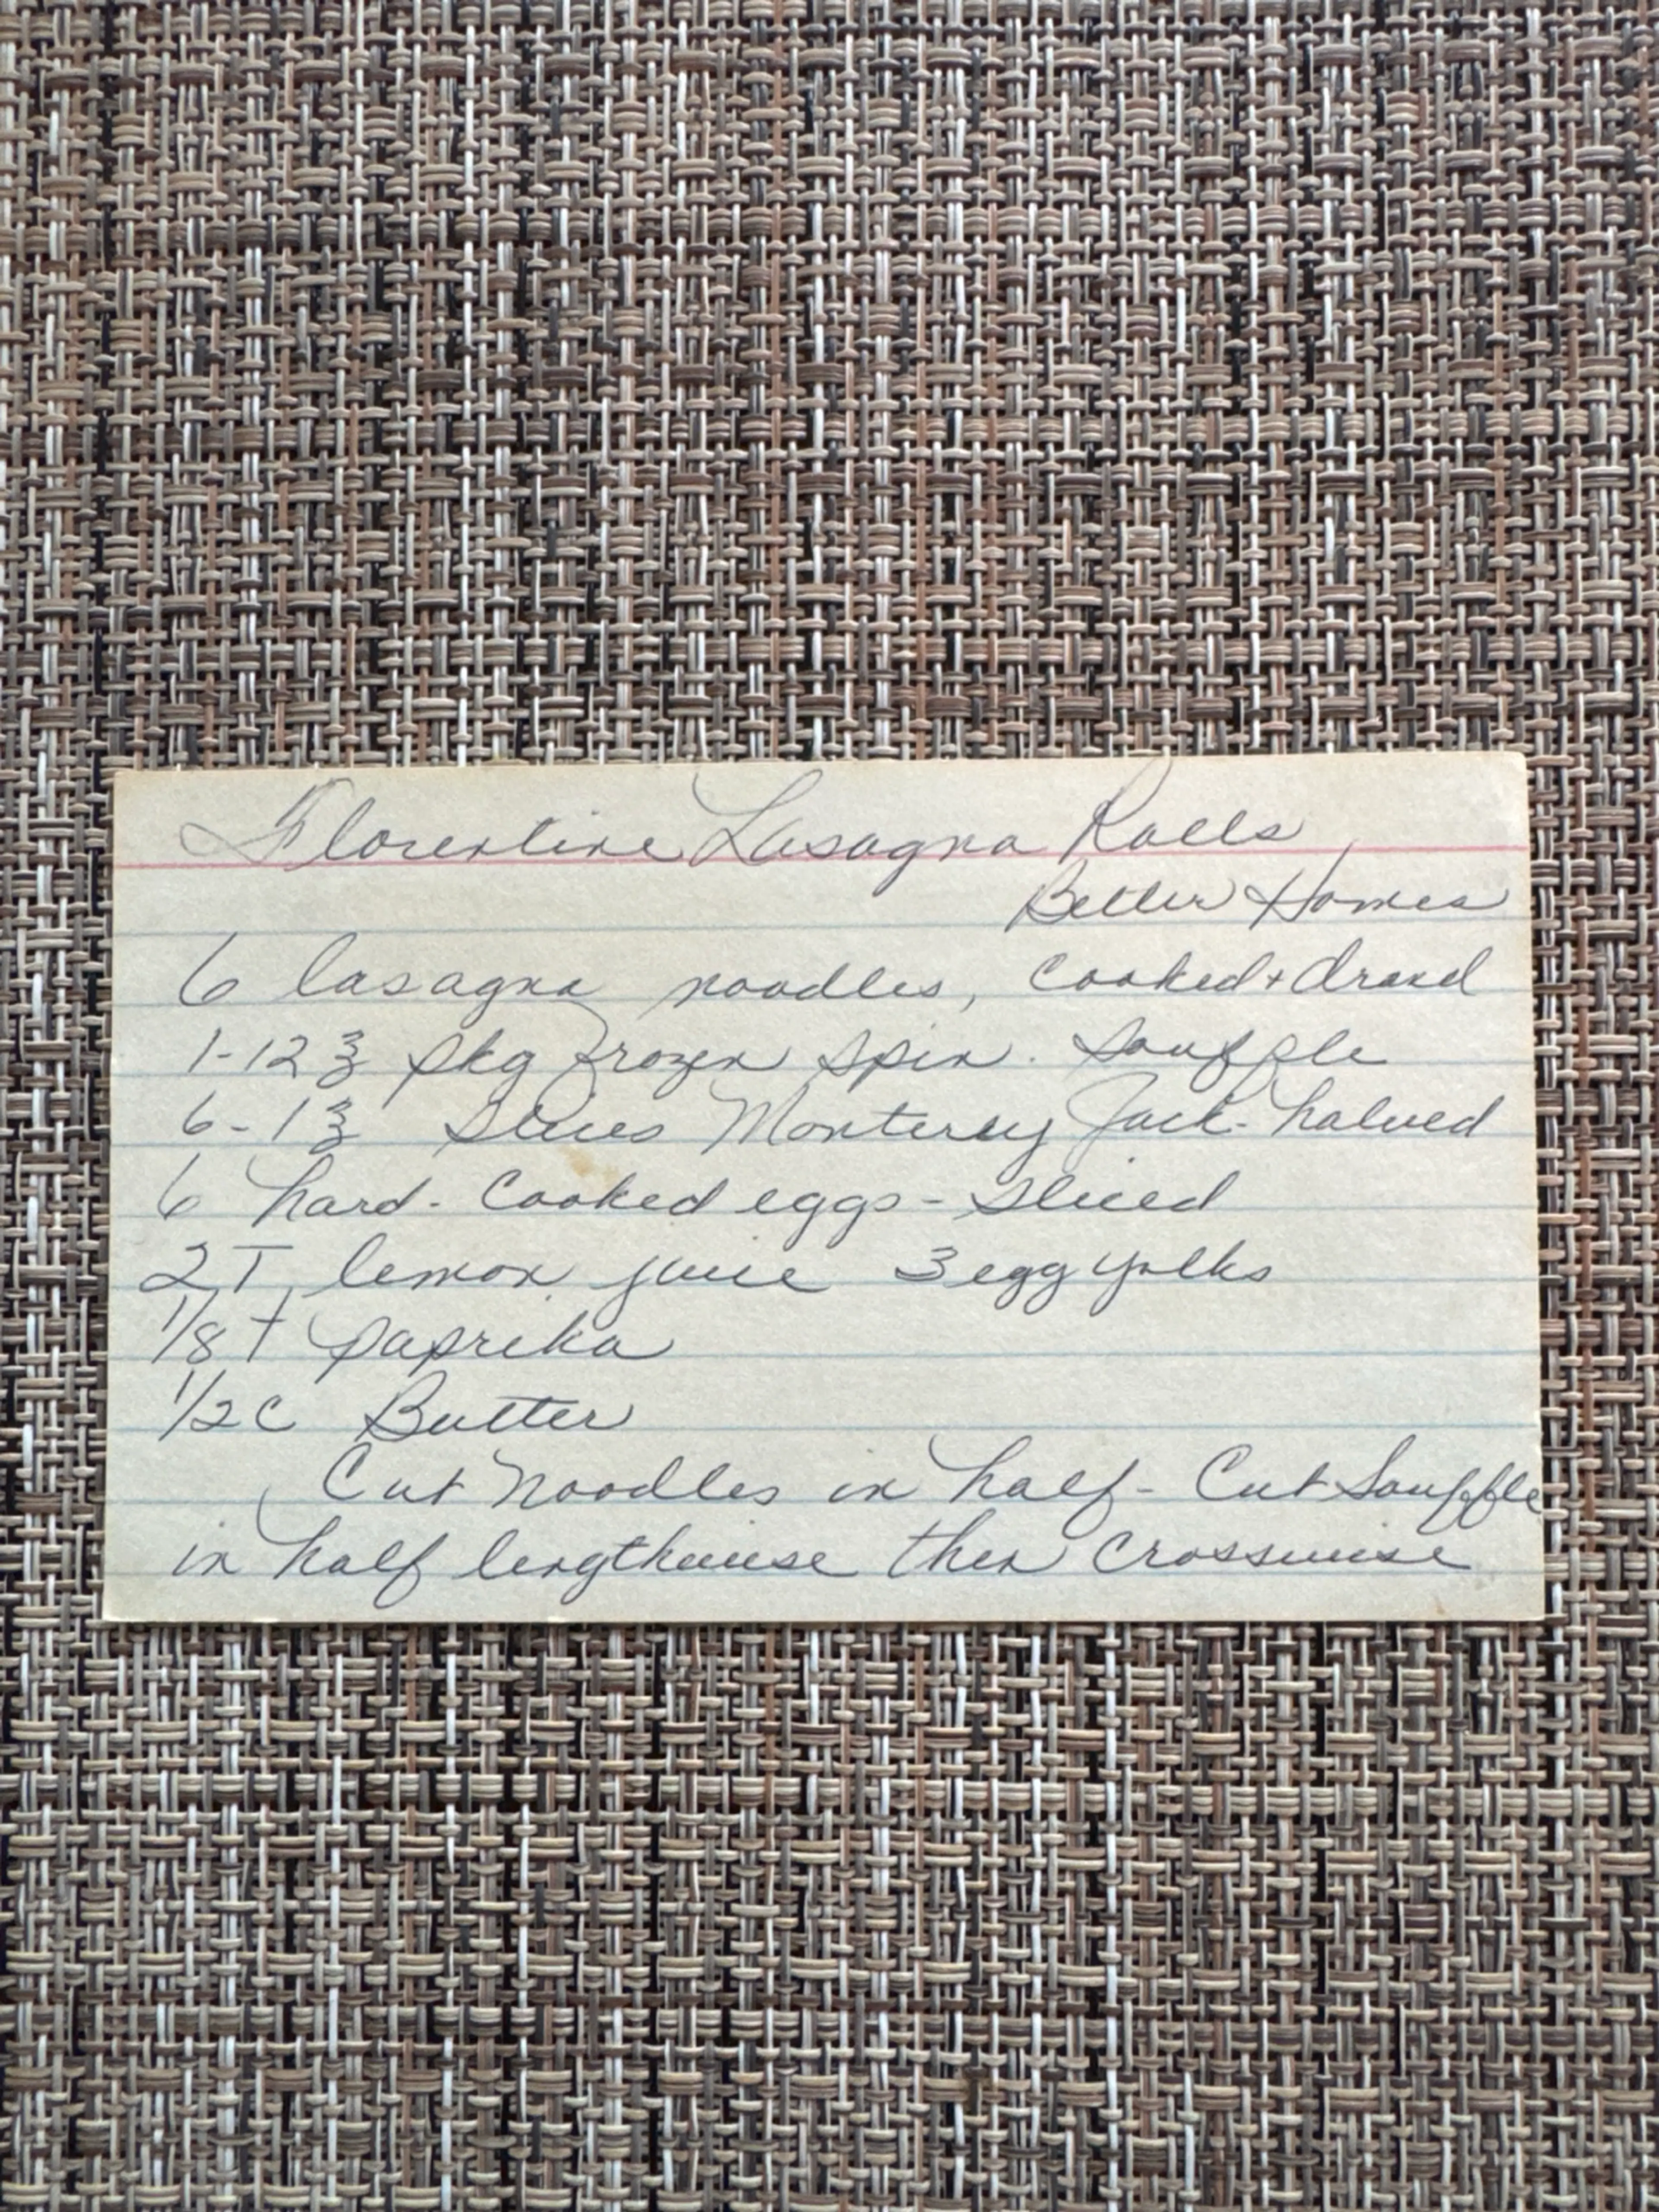 Florentine Lasagna Rolls
Better Homes
6 lasagna noodles, cooked + draned
1-12 ℥ pkg frozen spin. souffle
6-1 ℥ slices Monterey Jack- halved
6 hard-cooked eggs - sliced
2T lemon juice 3 egg yolks
1/8 t paprika
1/2 C Butter
Cut Noodles in half - Cut Souffle
in half lengthwise then crosswise